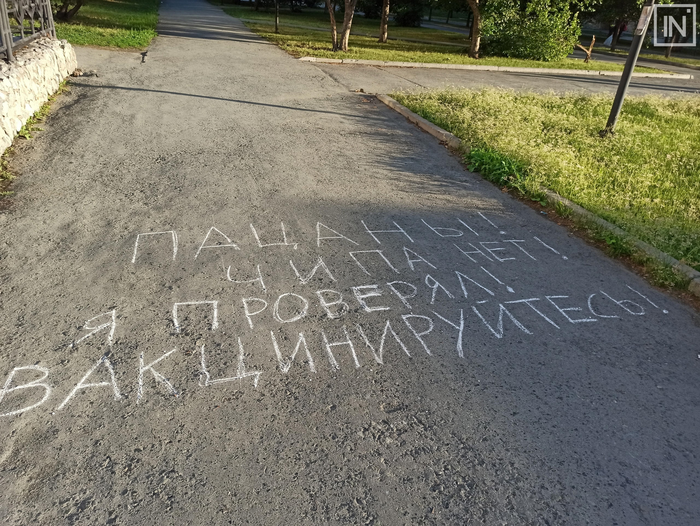 ПАЦАНЫ!
ЧИПА НЕТ!
Я ПРОВЕРЯЛ!
ВАКЦИНИРУЙТЕСЬ!
IN